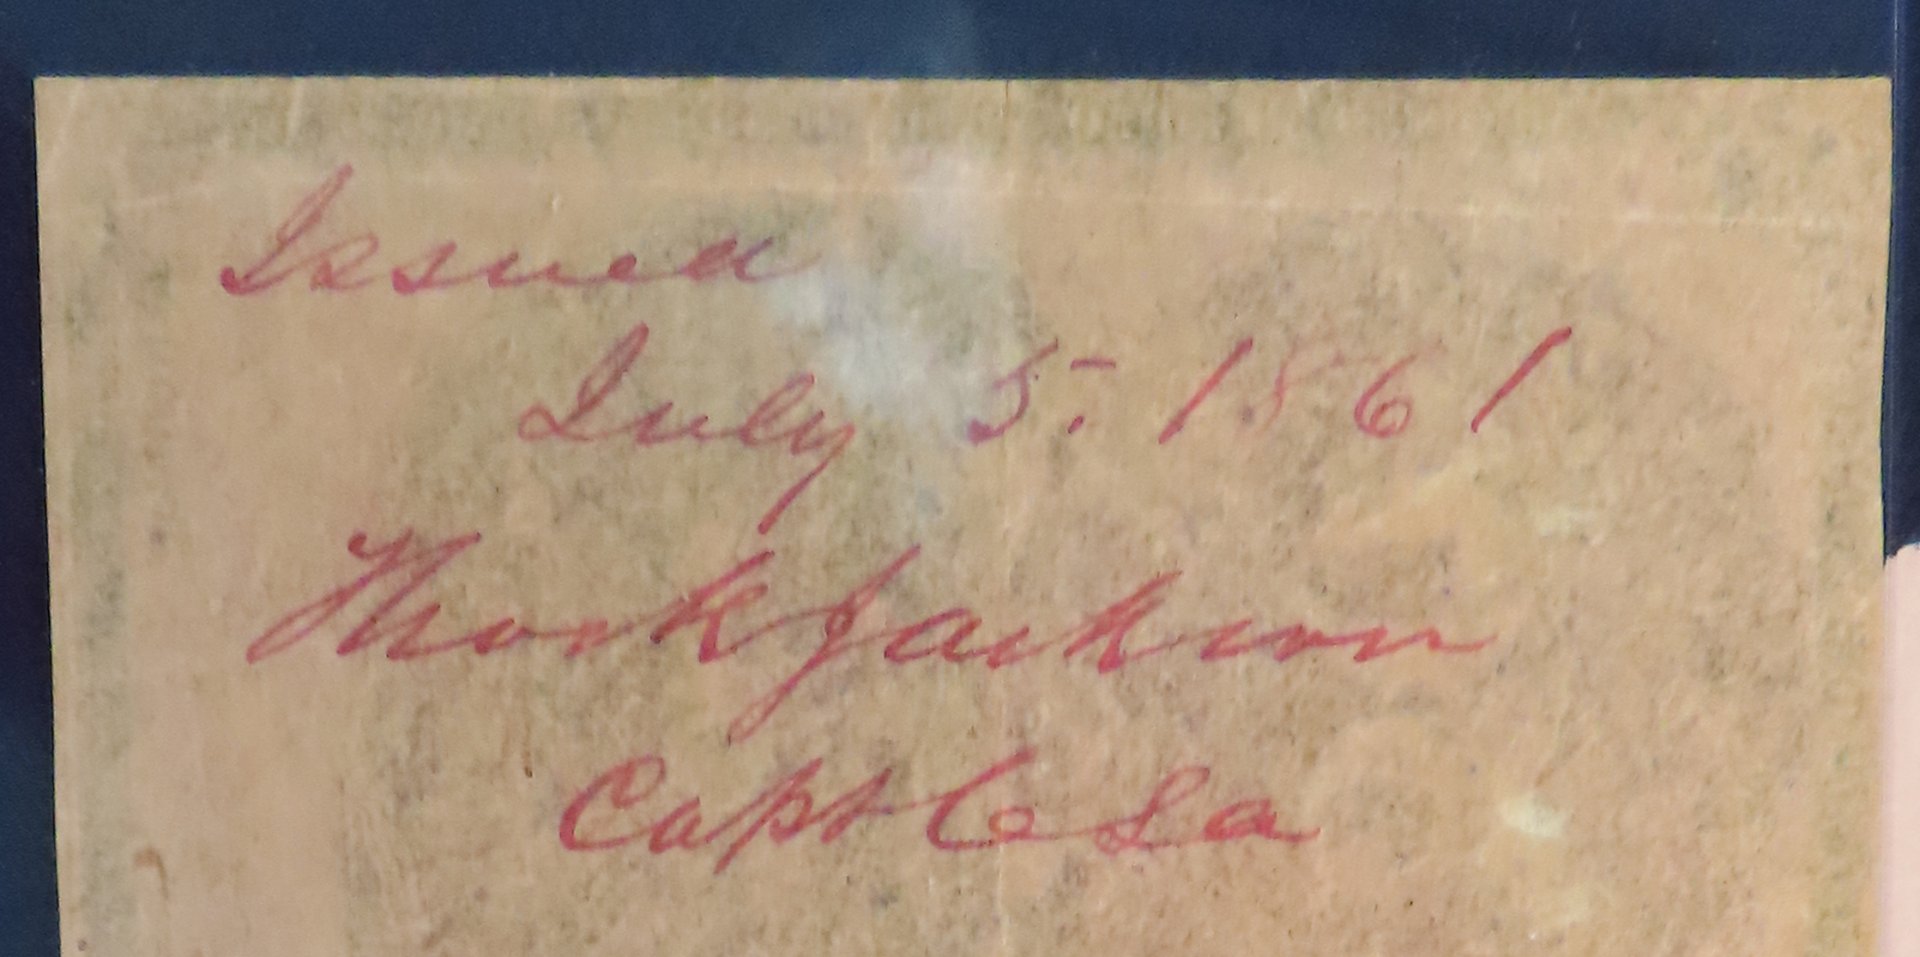 Issued
July 5. 1861
Thos K Jackson
Capt C S a